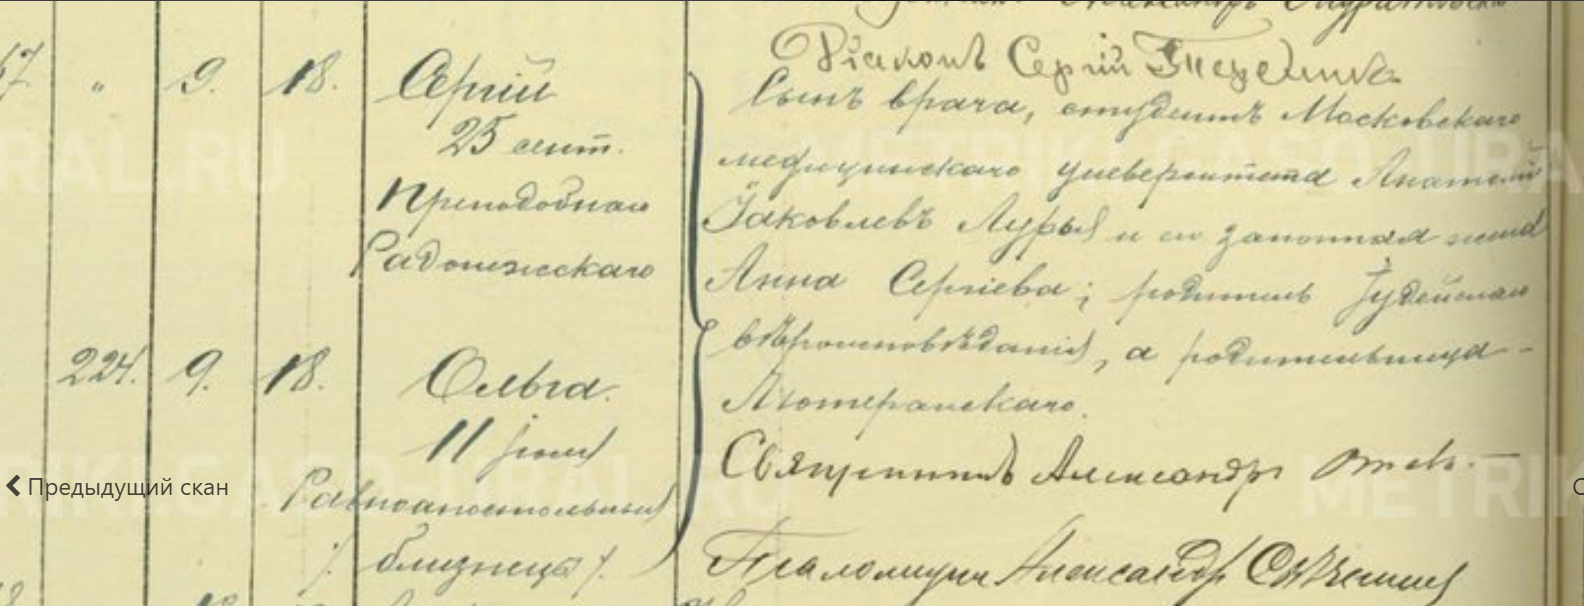 Діаконъ Сергій
67. " 9. 18. Сергій
25 сент.
Преподобнаго
Радонежскаго
Сынъ врача, студентъ Московскаго
медицинскаго университета Анатолій
Яковлевъ Лурья и его законная жена
Анна Сергіева; родитель Іудейскаго
вѣроисповѣданія, а родительница -
Лютеранскаго.
224. 9. 18. Ольга.
11 іюля
Равноапостольныя
/. близнецы /.
Священникъ Александръ
Псаломщикъ Александръ
METRIKI.GASO-URAL.RU
Предыдущий скан